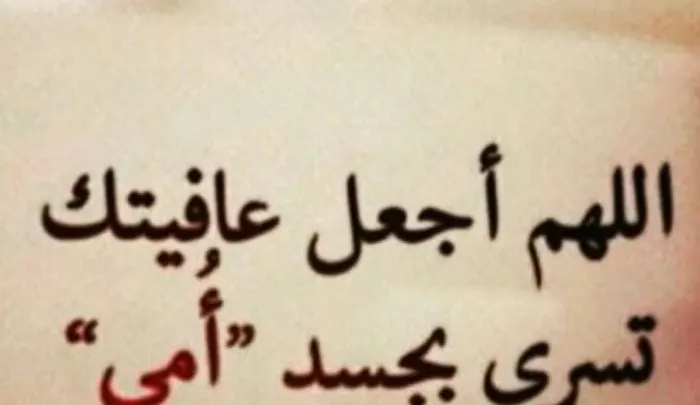 اللهم أجعل عافيتك
تسرى بجسد ”أُمي“